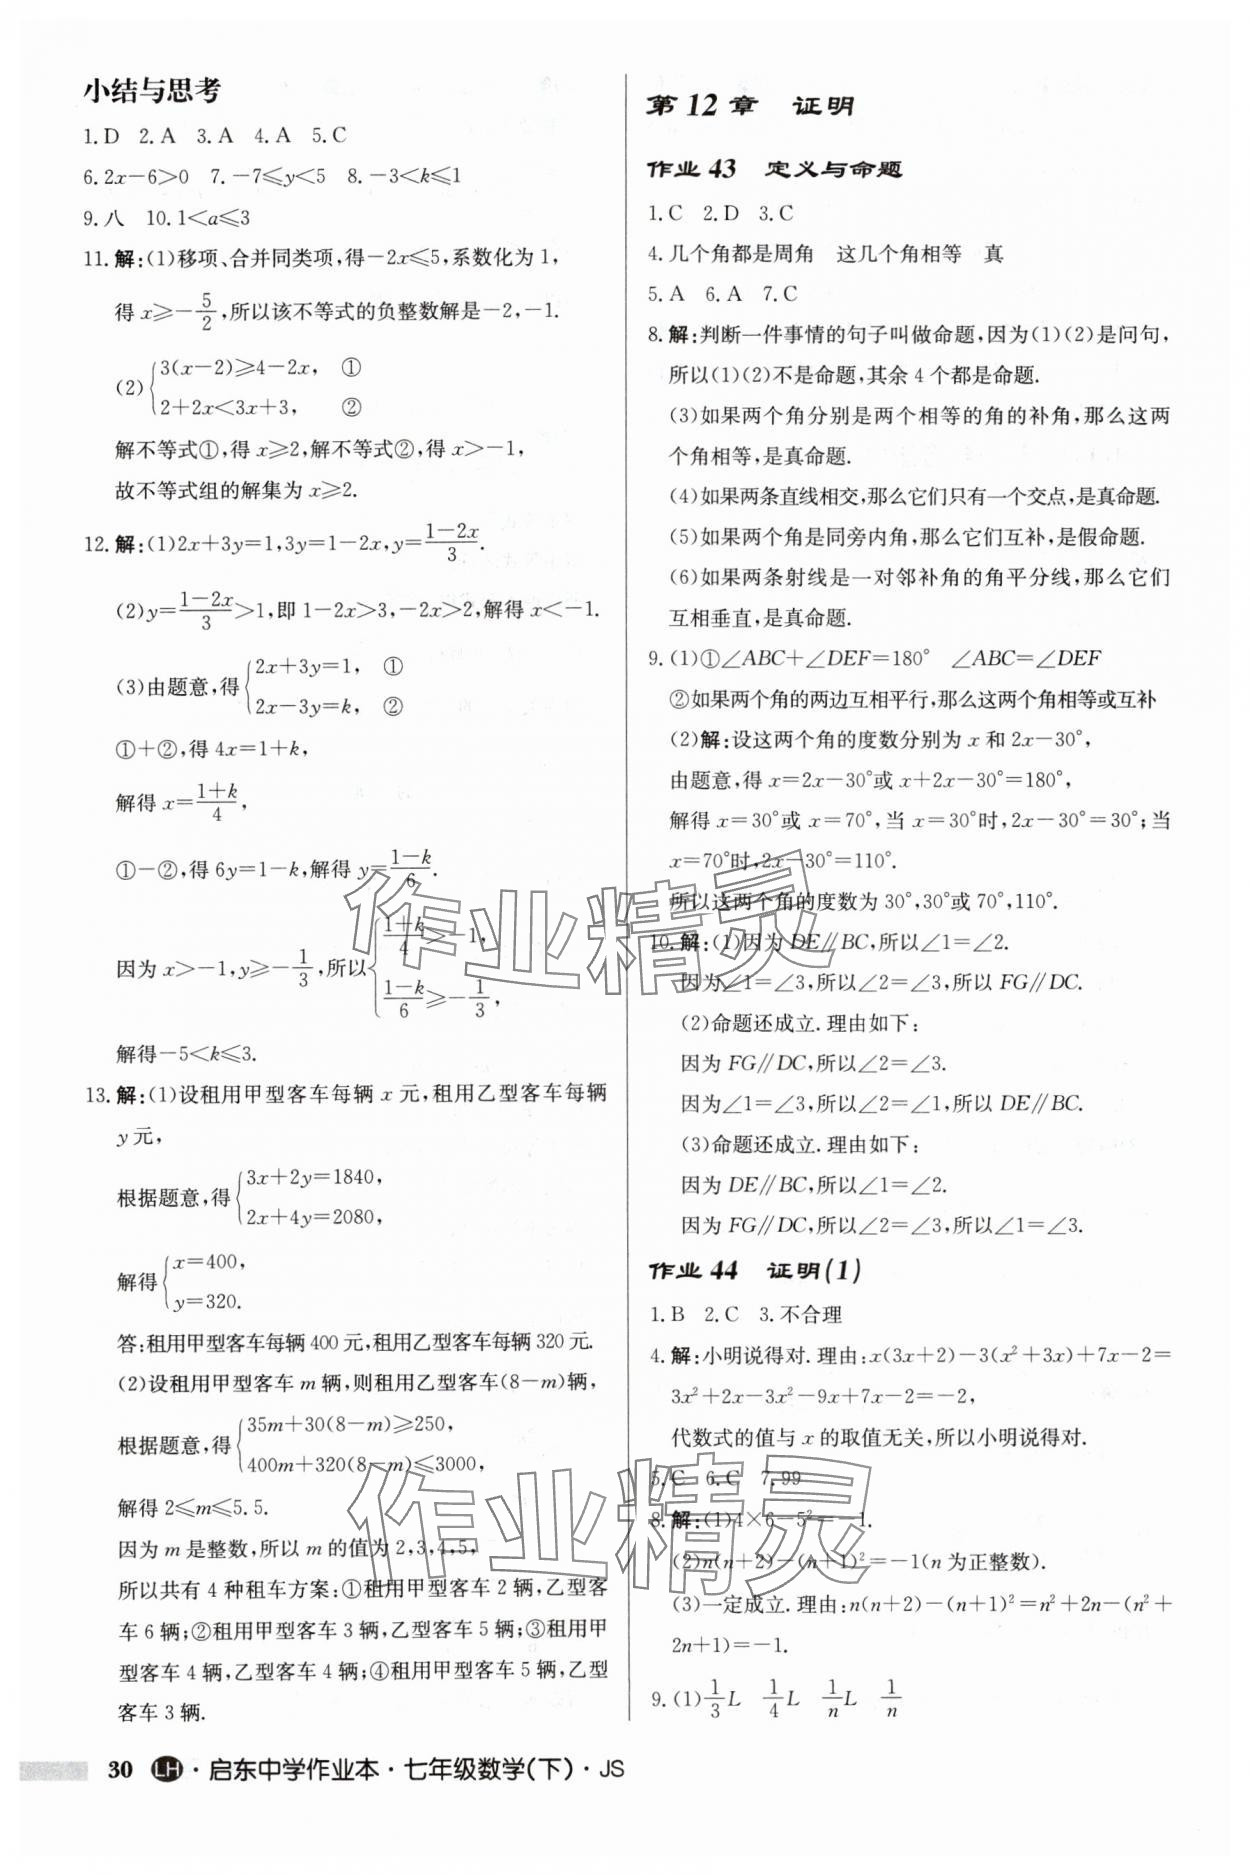 小结与思考
1.D 2.A 3.A 4.A 5.C
6.2x-6>0 7.-7⩽y<5 8.-3<k⩽1
9.八 10.1<a⩽3
11.解:(1)移项、合并同类项,得-2x⩽5,系数化为1,
得x⩾-5/2,所以该不等式的负整数解是-2,-1.
(2){3(x-2)⩾4-2x, ①
2+2x<3x+3, ②
解不等式①,得x⩾2,解不等式②,得x>-1,
故不等式组的解集为x⩾2.
12.解:(1)2x+3y=1,3y=1-2x,y=(1-2x)/3.
(2)y=(1-2x)/3>1,即1-2x>3,-2x>2,解得x<-1.
(3)由题意,得{2x+3y=1, ①
2x-3y=k, ②
①+②,得4x=1+k,
解得x=(1+k)/4,
①-②,得6y=1-k,解得y=(1-k)/6.
因为x>-1,y⩾-1/3,所以{(1+k)/4>-1,
(1-k)/6⩾-1/3,
解得-5<k⩽3.
13.解:(1)设租用甲型客车每辆x元,租用乙型客车每辆
y元,
根据题意,得{3x+2y=1840,
2x+4y=2080,
解得{x=400,
y=320.
答:租用甲型客车每辆400元,租用乙型客车每辆320元.
(2)设租用甲型客车m辆,则租用乙型客车(8-m)辆,
根据题意,得{35m+30(8-m)⩾250,
400m+320(8-m)⩽3000,
解得2⩽m⩽5.5.
因为m是整数,所以m的值为2,3,4,5,
所以共有4种租车方案:①租用甲型客车2辆,乙型客
车6辆;②租用甲型客车3辆,乙型客车5辆;③租用甲
型客车4辆,乙型客车4辆;④租用甲型客车5辆,乙型
客车3辆.
第12章 证明
作业43 定义与命题
1.C 2.D 3.C
4.几个角都是周角 这几个角相等 真
5.A 6.A 7.C
8.解:判断一件事情的句子叫做命题,因为(1)(2)是问句,
所以(1)(2)不是命题,其余4个都是命题.
(3)如果两个角分别是两个相等的角的补角,那么这两
个角相等,是真命题.
(4)如果两条直线相交,那么它们只有一个交点,是真命题.
(5)如果两个角是同旁内角,那么它们互补,是假命题.
(6)如果两条射线是一对邻补角的角平分线,那么它们
互相垂直,是真命题.
9.(1)①∠ABC+∠DEF=180° ∠ABC=∠DEF
②如果两个角的两边互相平行,那么这两个角相等或互补
(2)解:设这两个角的度数分别为x和2x-30°,
由题意,得x=2x-30°或x+2x-30°=180°,
解得x=30°或x=70°,当x=30°时,2x-30°=30°;当
x=70°时,2x-30°=110°.
所以这两个角的度数为30°,30°或70°,110°.
10.解:(1)因为DE∥BC,所以∠1=∠2.
因为∠1=∠3,所以∠2=∠3,所以FG∥DC.
(2)命题还成立.理由如下:
因为FG∥DC,所以∠2=∠3.
因为∠1=∠3,所以∠2=∠1,所以DE∥BC.
(3)命题还成立.理由如下:
因为DE∥BC,所以∠1=∠2.
因为FG∥DC,所以∠2=∠3,所以∠1=∠3.
作业44 证明(1)
1.B 2.C 3.不合理
4.解:小明说得对.理由:x(3x+2)-3(x²+3x)+7x-2=
3x²+2x-3x²-9x+7x-2=-2,
代数式的值与x的取值无关,所以小明说得对.
5.C 6.C 7.99
8.解:(1)4×6-5²=-1.
(2)n(n+2)-(n+1)²=-1(n为正整数).
(3)一定成立.理由:n(n+2)-(n+1)²=n²+2n-(n²+
2n+1)=-1.
9.(1)1/3L 1/4L 1/nL 1/n
30 LH·启东中学作业本·七年级数学(下)·JS
作业精灵
作业精灵